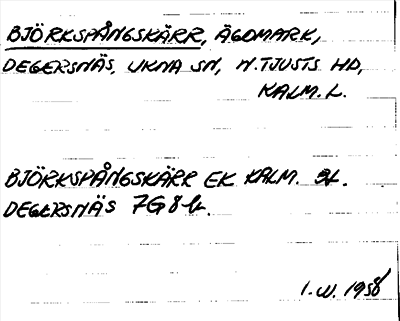 BJÖRKSPÅNGSKÄRR, ÄGOMARK,
DEGERSNÄS, UKNA SN, N. TJUSTS HD,
KALM. L.
BJÖRKSPÅNGSKÄRR EK KALM.
DEGERSNÄS 7G8b.
I. W. 1958